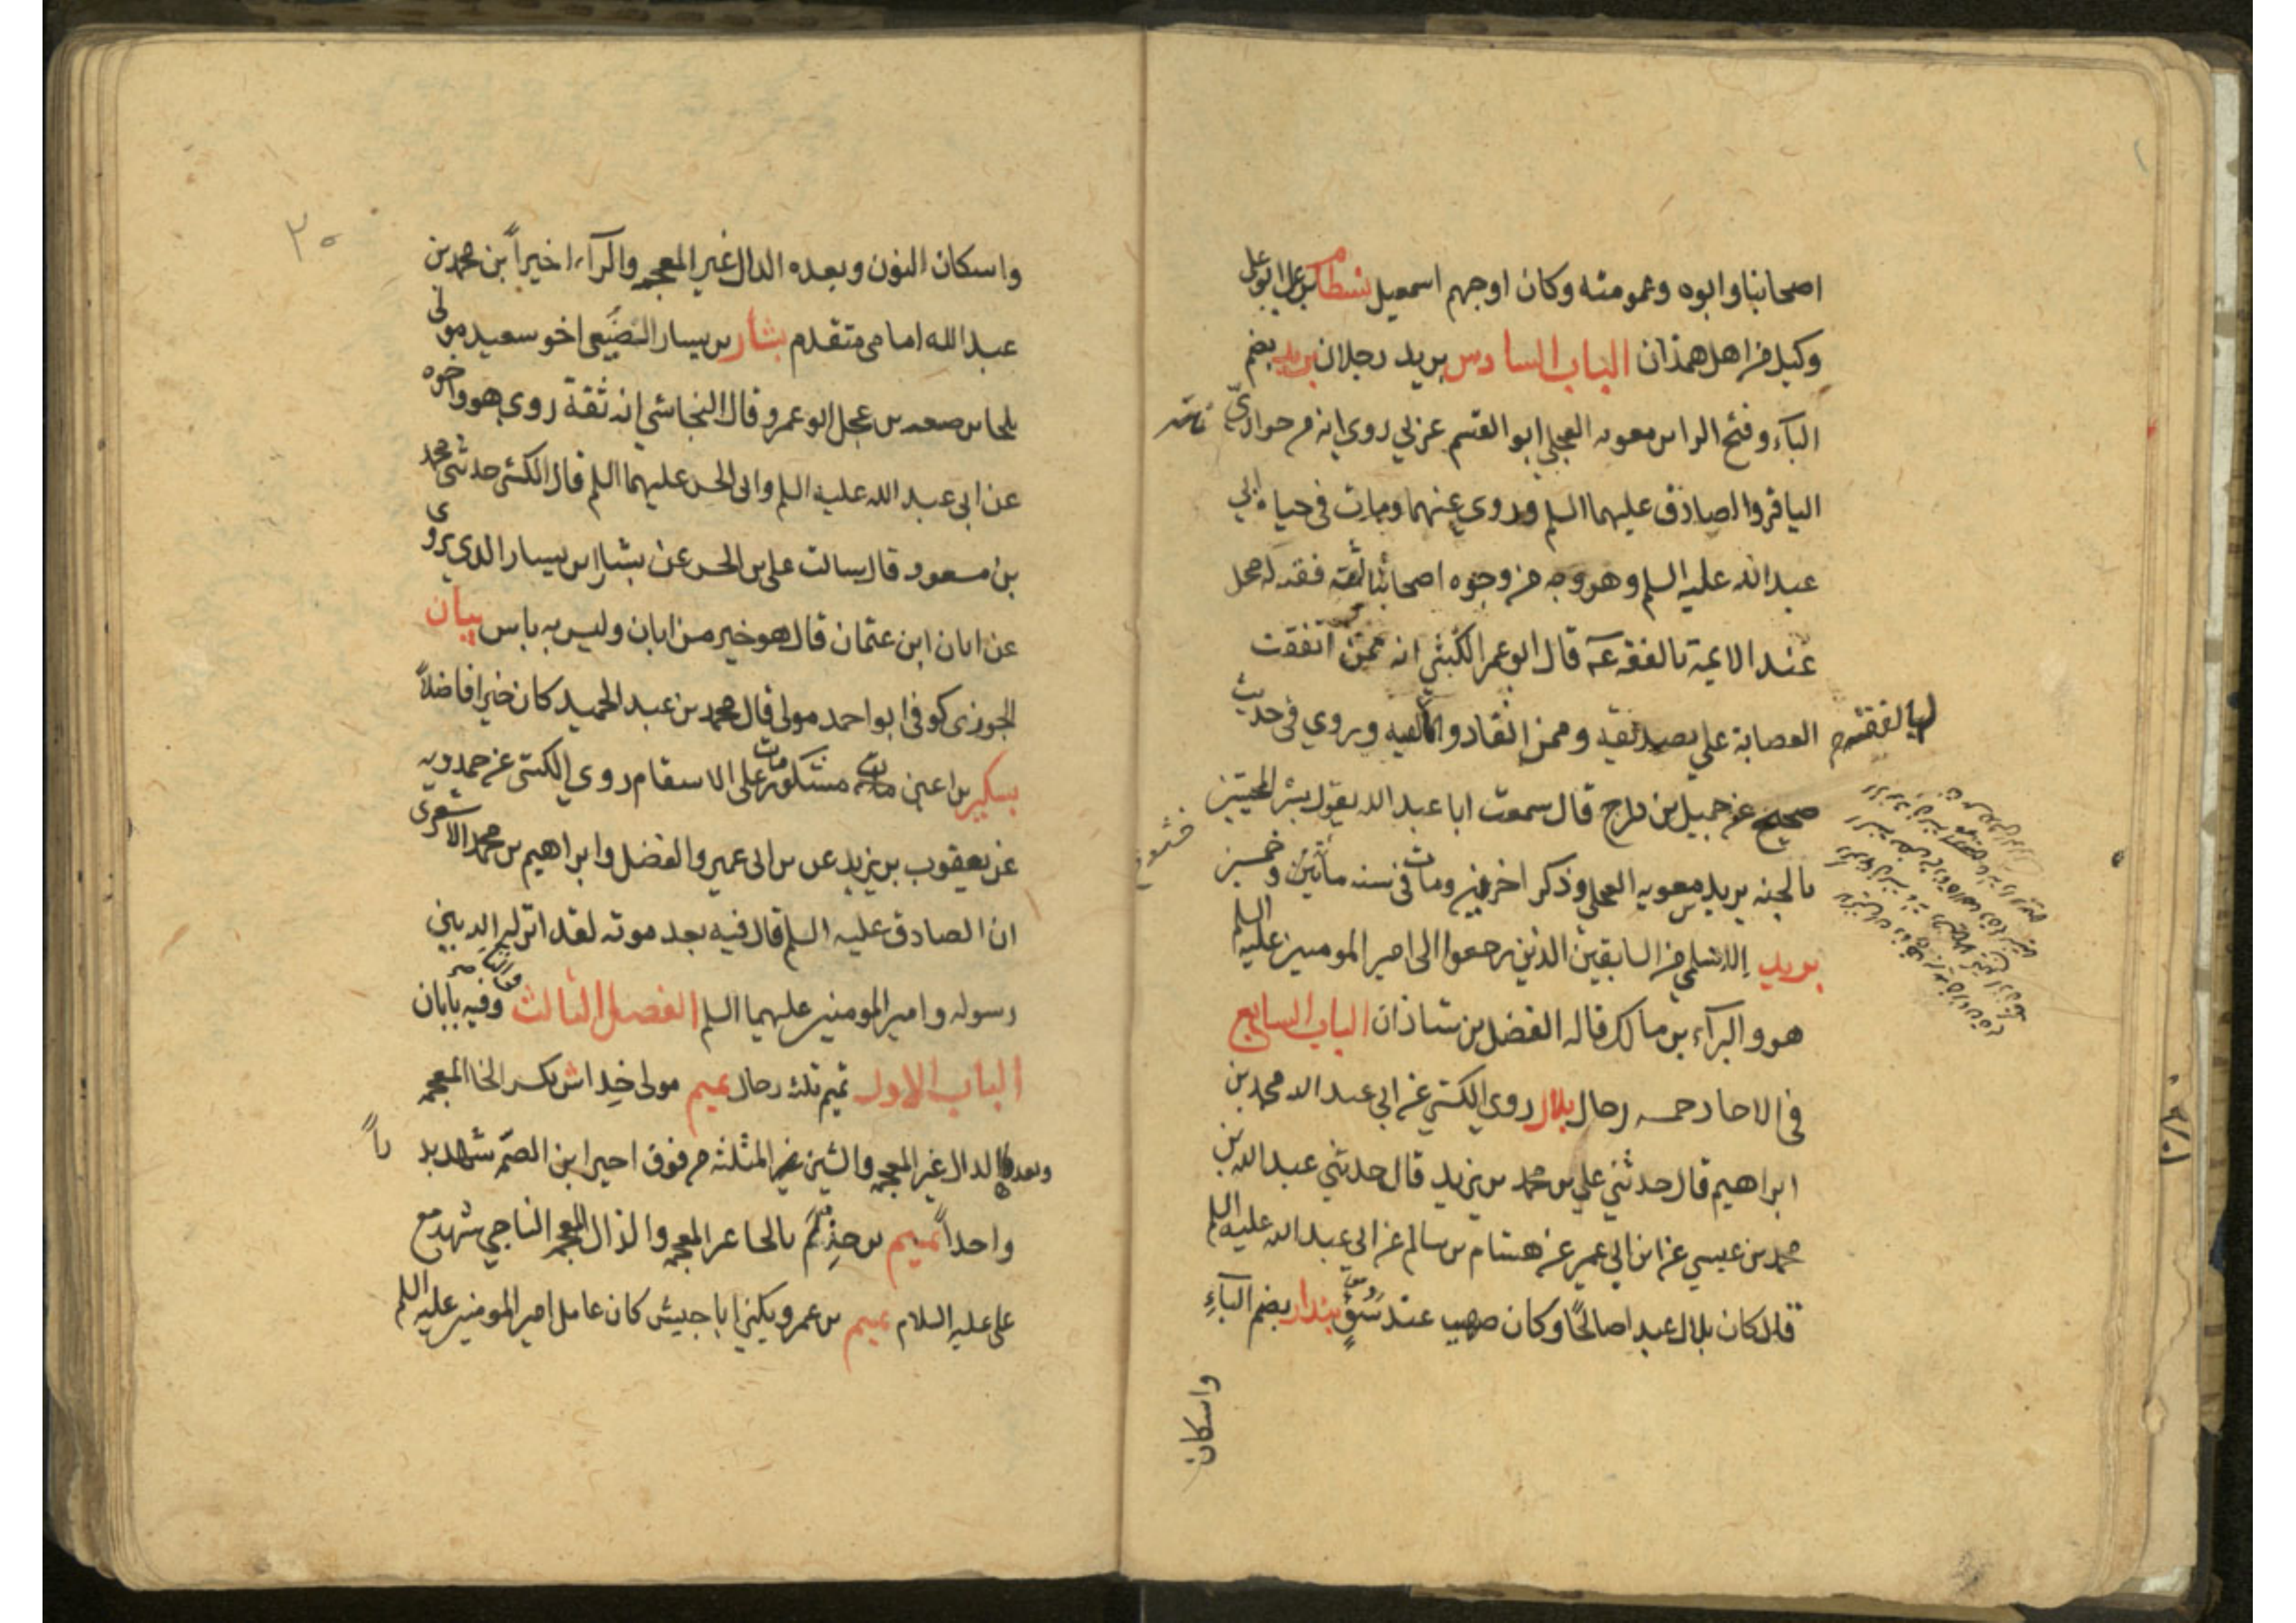 اصحابنا وابوه وعمومته وكان اوجههم اسمعيل بسطام بن علي ابو علي
وكيل من اهل همذان الباب السادس بريد رجلان بريد بضم
الباء وفتح الرا بن معويه العجلي ابو القسم عربي روي انه من حواري
الباقر والصادق عليهما السلم وروي عنهما ومات في حياة ابي
عبد الله عليه السلم وهو وجه من وجوه اصحابنا ثقة فقيه له محل
عند الايمة قال ابو عمر الكشي انه ممن اتفقت
العصابة علي تصديقه وممن انقادوا له بالفقه وروي في حديث
صحيح عن جميل بن دراج قال سمعت ابا عبد الله يقول بشر المخبتين
بالجنه بريد بن معويه العجلي وذكر اخرين ومات في سنه مائين وخمسين
بريد الاسلمي من السابقين الذين رجعوا الى امير المومنين عليه السلم
هو والبرآء بن مالك قاله الفضل بن شاذان الباب السابع
في الاحاد خمسه رجال بلال روي الكشي عن ابي عبد الله محمد بن
ابراهيم قال حدثني علي بن محمد بن يزيد قال حدثني عبد الله بن
محمد بن عيسي عن ابن ابي عمير عن هشام بن سالم عن ابي عبد الله عليه السلم
قال كان بلال عبدا صالحًا وكان صهيب عبد سوء بندار بضم الباءِ
واسكان
٣٠
واسكان النون وبعده الدال غير المعجمه والرآء اخيراً بن محمد بن
عبد الله امامي متقدم بشار بن يسار الضبيعي اخو سعيد مولى
بن عجل ابو عمرو قال النجاشي انه ثقة روى هو واخوه
عن ابي عبد الله عليه السلم وابى الحسن عليهما السلم قال الكشي حدثني محمد
بن مسعود قال سالت علي بن الحسن عن بشار بن يسار الذي يروى
عن ابان ابن عثمان قال هو خير من ابان وليس به باس بيان
الجوزى كوفى ابو احمد مولى قال محمد بن عبد الحميد كان خيرا فاضلاً
بكير بن اعين مشكور مات على الاستقام روي الكشي عن حمدويه
عن يعقوب بن يزيد عن بن ابى عمير والفضل وابراهيم بن محمد الاشعرى
ان الصادق عليه السلم قال فيه بعد موته لقد انزله الله بين
رسوله وامير المومنين عليهما السلم الفصل الثالث وفيه بابان
الباب الاول تميم ثلثه رجال تميم مولى خِداش بكسر الخا المعجمه
وبعدها الدال غير المعجمه والشين المثلثه من فوق اخيرا بن الصمّه شهد بدراً
واحداً تميم بن حِذيم بالحا غير المعجمه والذال المعجمه الناجي شهد مع
علي عليه السلام تميم بن عمرو يكنى ابا حبيش كان عامل امير المومنين عليه السلم